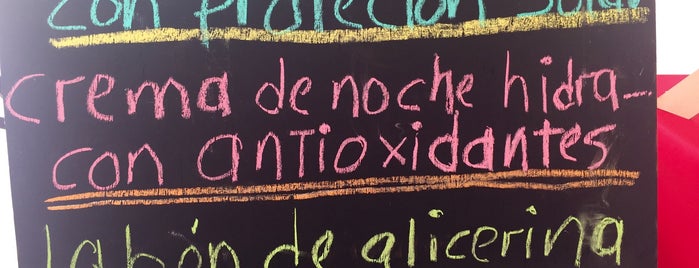 con protección solar
crema de noche hidra-
con antioxidantes
Jabón de glicerina